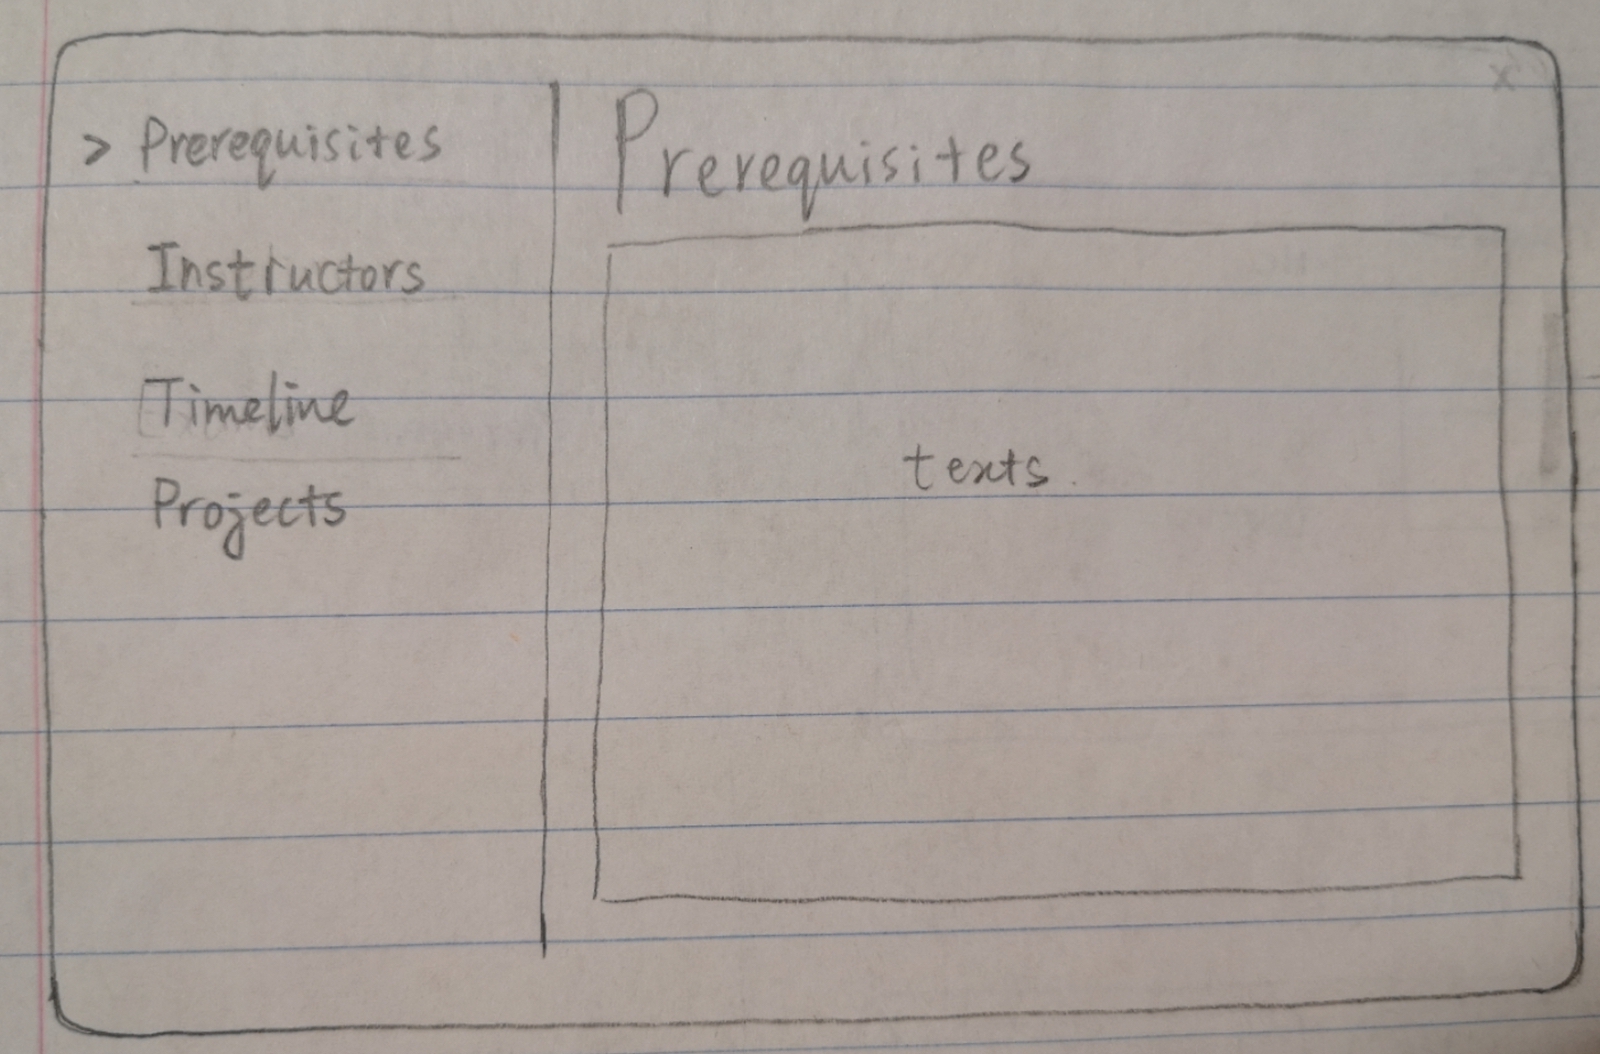 > Prerequisites
Instructors
Timeline
Projects
x
Prerequisites
texts